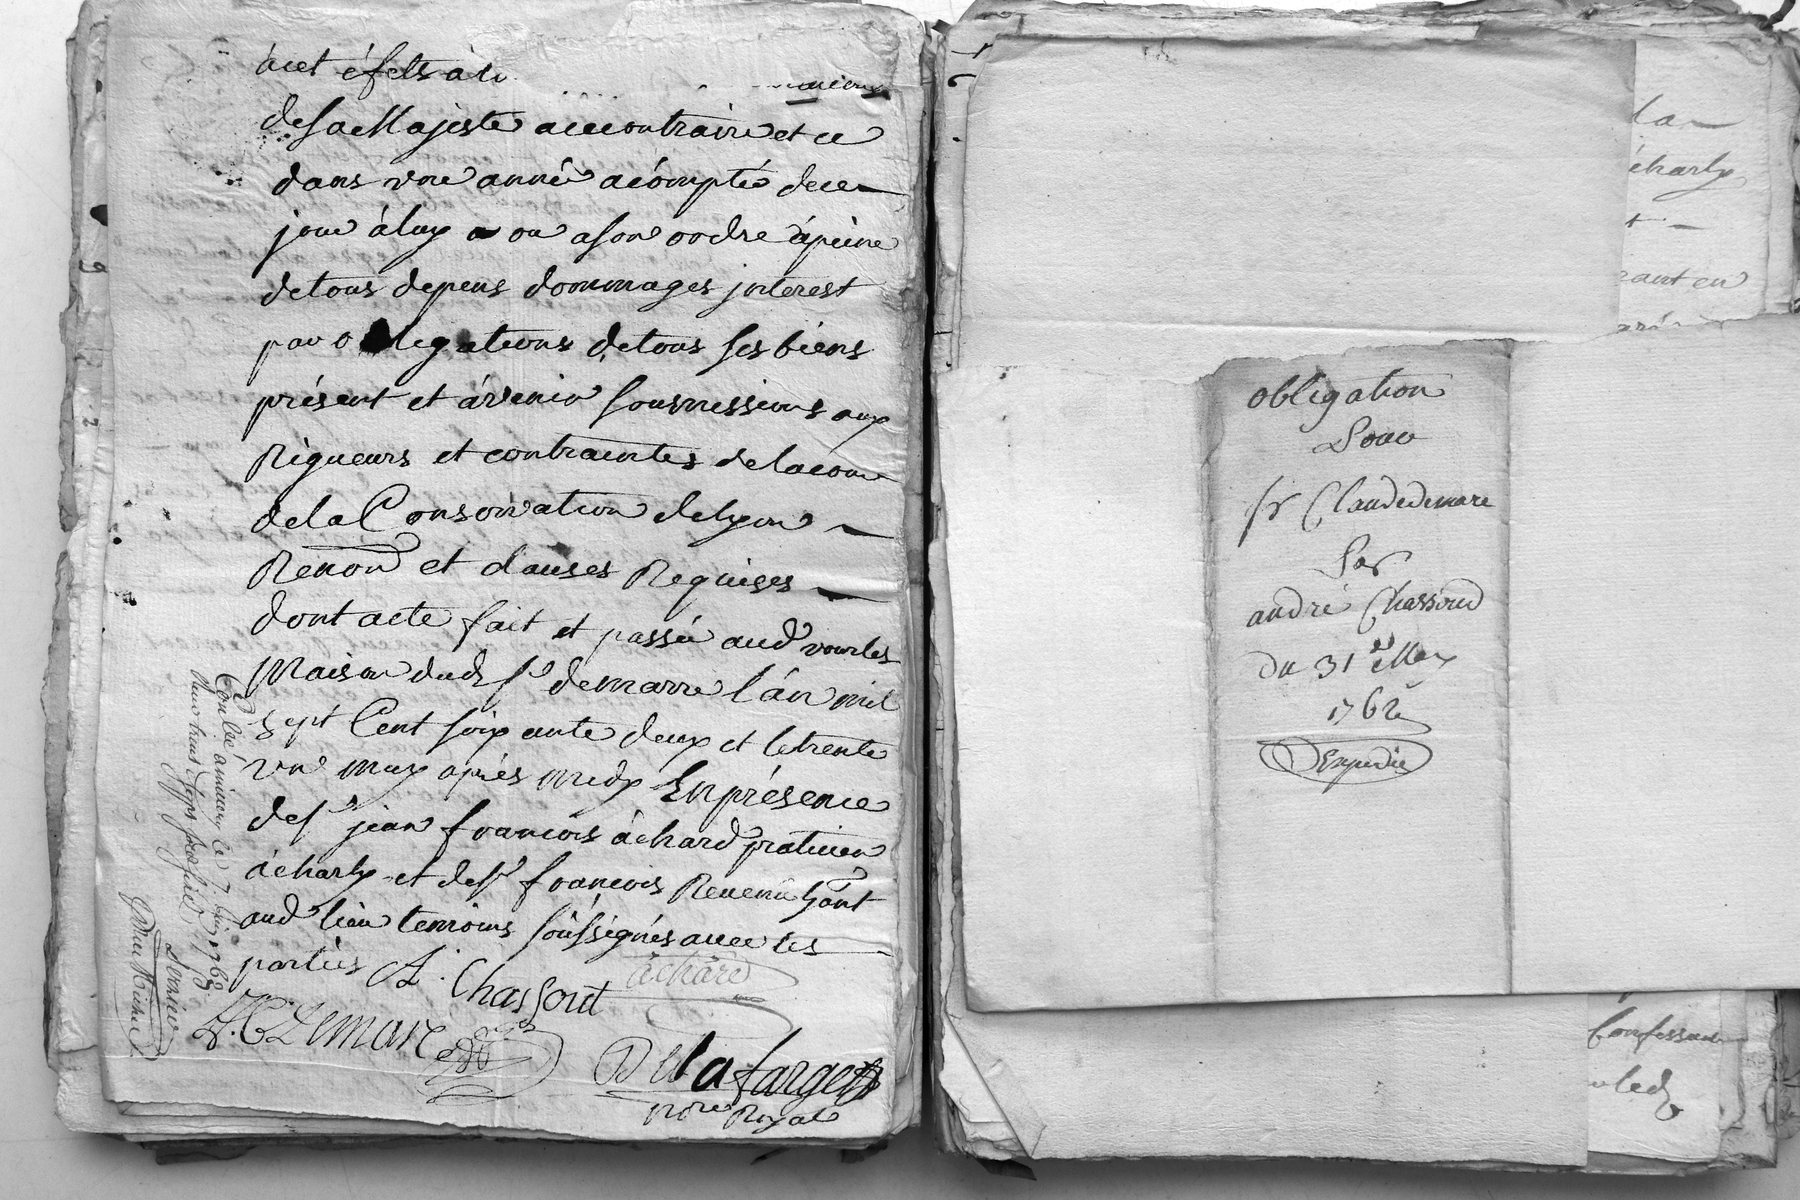 et éfets a
de sa Majeste acecontraire et ce
dans une année acompté dece
jour à luy ou ason ordre àpeine
detous depens dommages jnterest
par obligations detous ses biens
présent et àvenir soumissions aux
Rigueurs et contraintes de lacour
dela Conservation delyon
Renon et clauses Requises
dont acte fait et passée aud vourles
Maison dud sr demarre l'an mil
sept Cent soixante deux et letrente
un may après midy Enprésence
de sr jean francois àchard praticien
àcharly et de sr francois Revenu
aud lieu temoins soussignés avec les
parties
A. Chassout
achard
Demare
Delafarge
nore Royal
Conllé a le 7 juin 1762
Reçu
obligation
Pour
sr Claudedemare
Par
andré Chassoud
du 31e May
1762
Expedie
la
écharly
t
rant en
Confessant
led